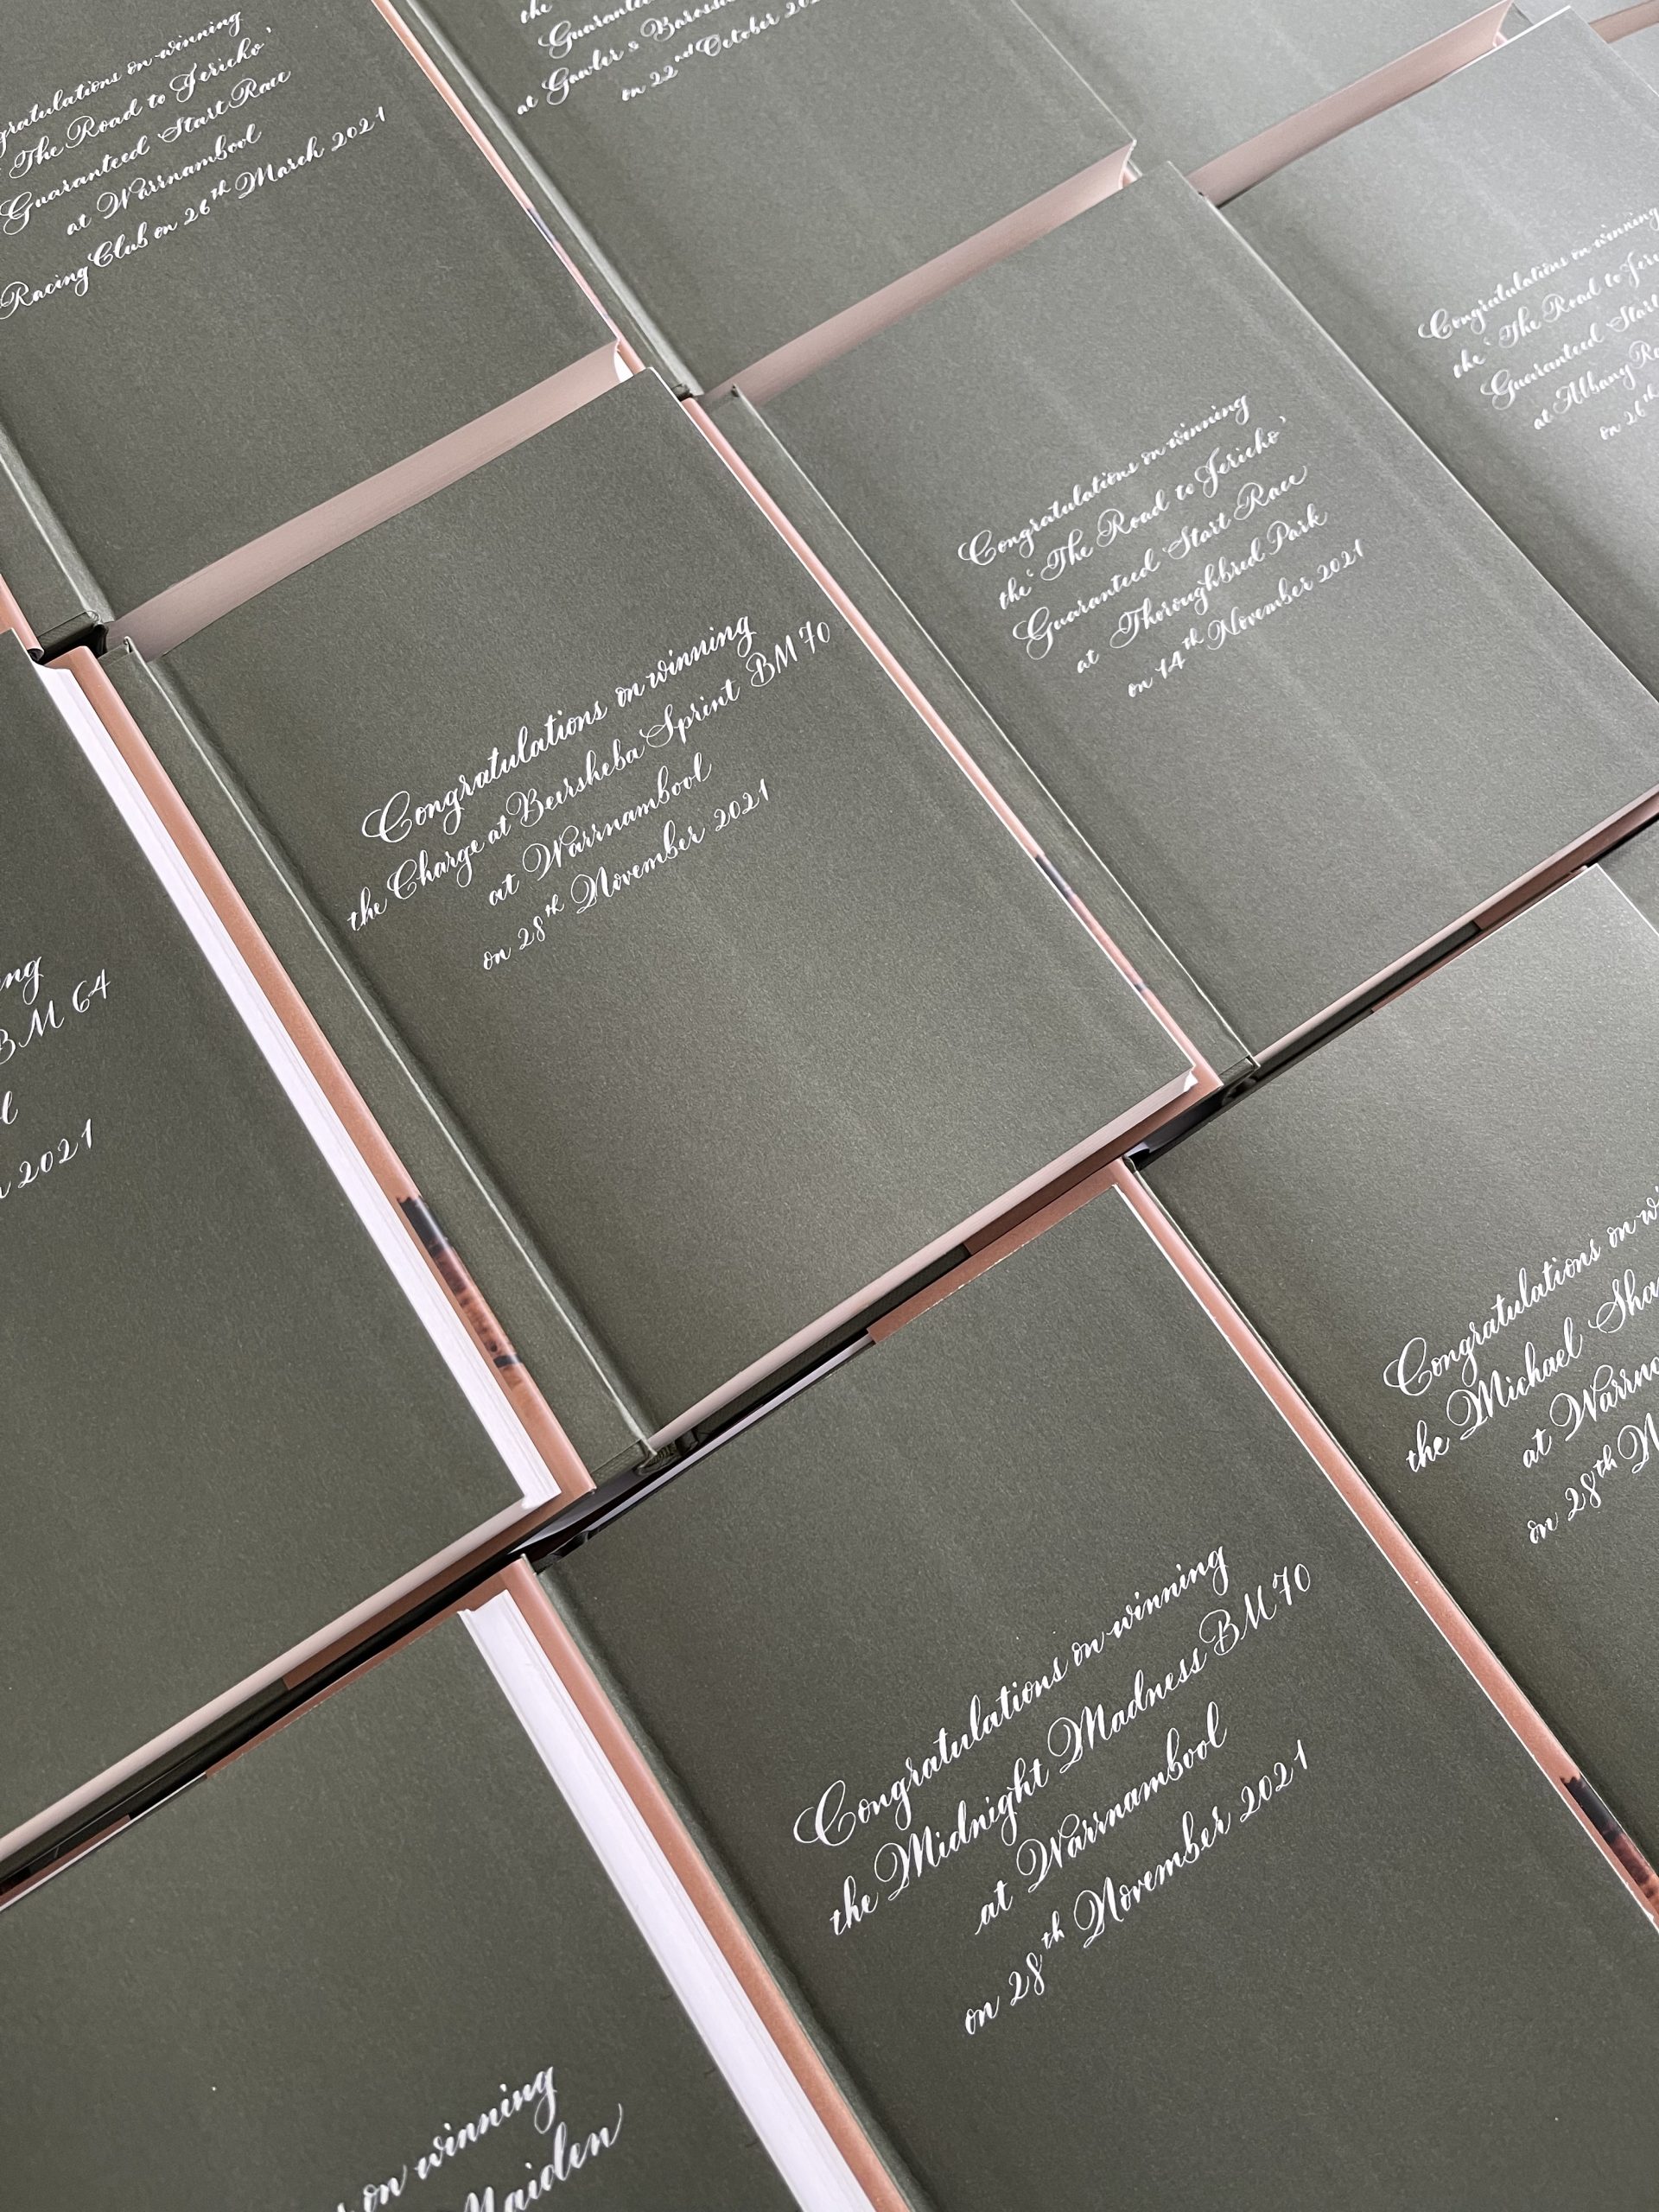 Congratulations on winning
'The Road to Jericho'
Guaranteed Start Race
at Warrnambool
Racing Club on 26th March 2021
the
Guaranteed
at Gawler & Barossa
on 22nd October
Congratulations on winning
the 'The Road to
Guaranteed Start
at Albany
on 26th
Congratulations on winning
the 'The Road to Jericho'
Guaranteed Start Race
at Thoroughbred Park
on 14th November 2021
Congratulations on winning
the Charge at Beersheba Sprint BM 70
at Warrnambool
on 28th November 2021
BM 64
2021
Congratulations on
the Michael
at
on 28th
Congratulations on winning
the Midnight Madness BM 70
at Warrnambool
on 28th November 2021
on winning
Maiden